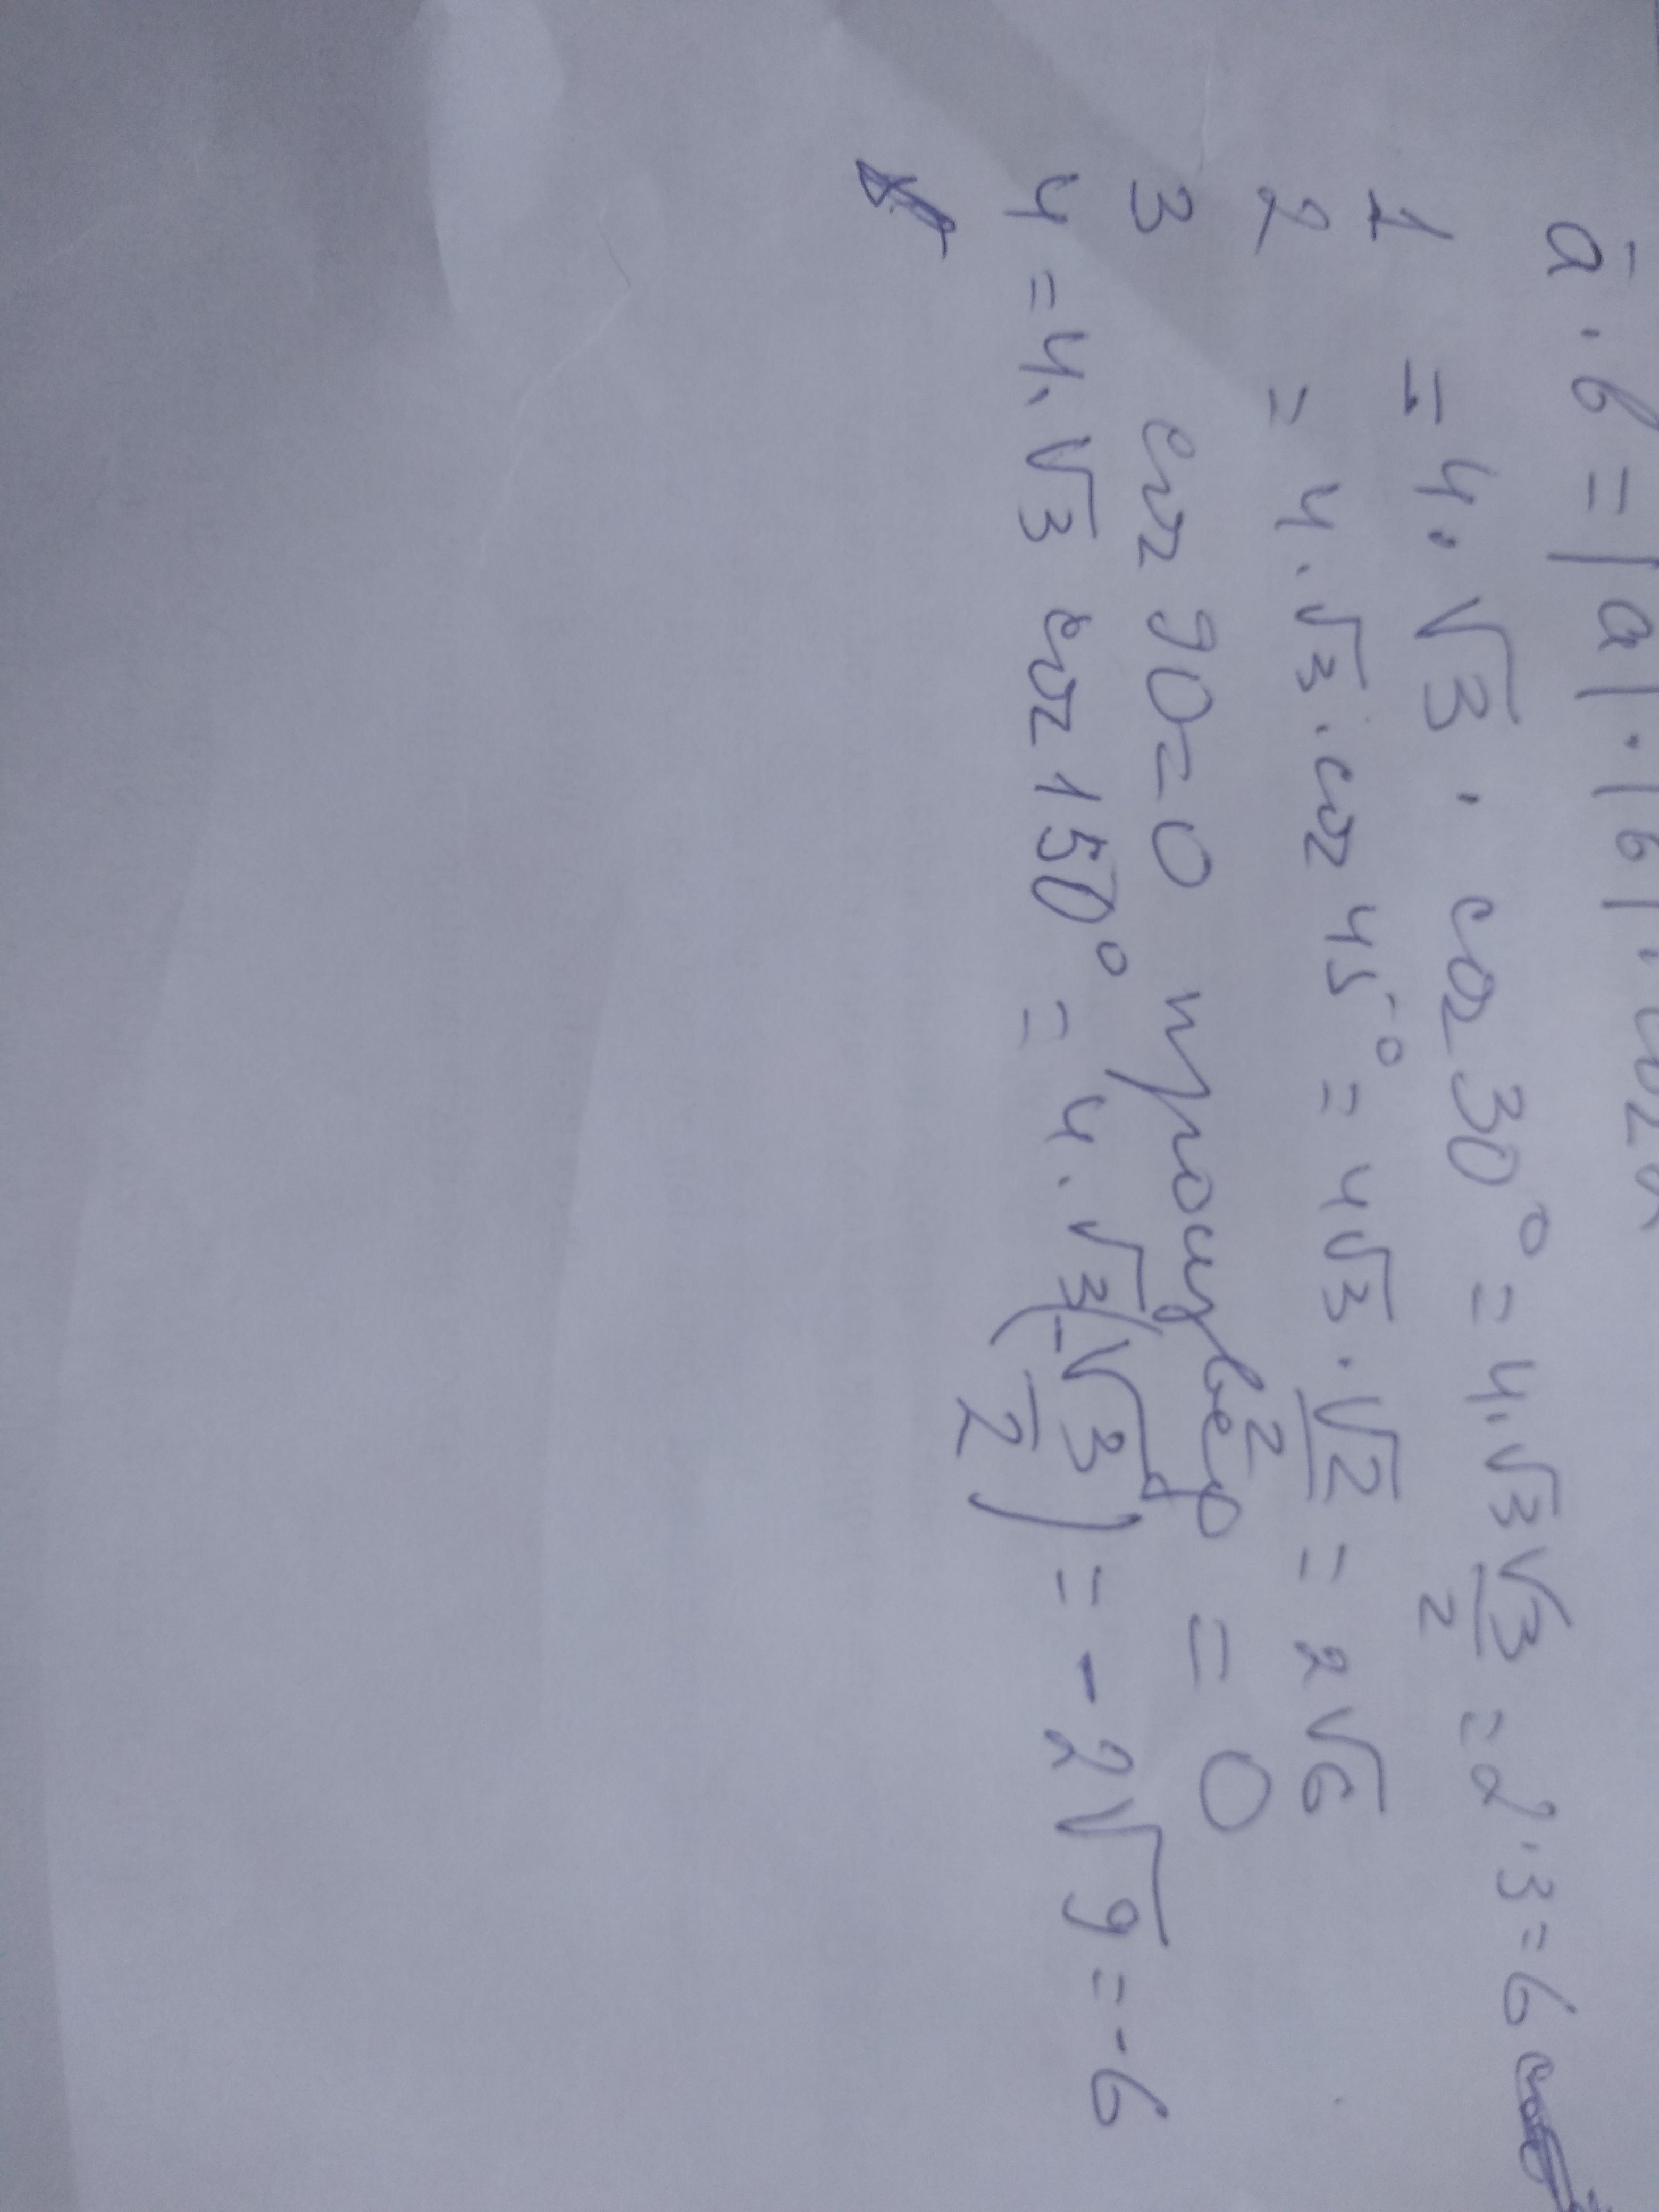 ā · b = |a| · |b| · cos α
1 = 4 · √3 · cos 30° = 4 · √3 √3/2 = 2 · 3 = 6
2 = 4 · √3 · cos 45° = 4√3 · √2/2 = 2√6
3 cos 90 = 0 = 0
4 = 4 · √3 cos 150° = 4 · √3 (-√3/2) = -2√9 = -6